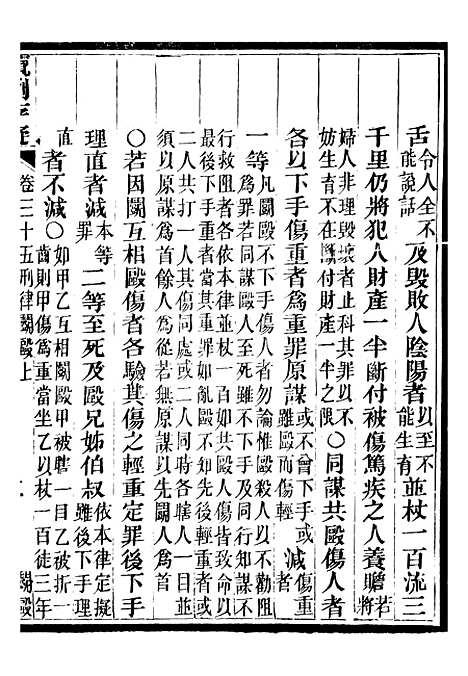 舌令人全不能說話及毀敗人陰陽者以至不能生育並杖一百流三
千里仍將犯人財產一半斷付被傷篤疾之人養贍若將
婦人非理毀壞者止科其罪以不妨生育不在斷付財產一半之限○同謀共毆傷人者
各以下手傷重者爲重罪原謀或不曾下手或雖毆傷輕減傷重者
一等凡鬬毆不論惟毆殺人以勸阻爲罪若同謀毆人至死雖不下手及同行知謀不
行救阻者各依本律並杖一百如共毆人傷皆致命以最後下手重者當其重罪如亂毆不知先後輕重者或
二人共打一人其傷同處或二人同時各瞎人一目並須以原謀爲首餘人爲從若無原謀以先鬬人爲首
○若因鬬互相毆傷者各驗其傷之輕重定罪後下手
理直者減本等罪二等至死及毆兄姊伯叔依本律定擬雖後下手理
直者不減○如甲乙互相鬬毆甲被瞎一目乙被折一齒則甲傷爲重當坐乙以杖一百徒三年
卷三十五刑律鬬毆上
鬬毆